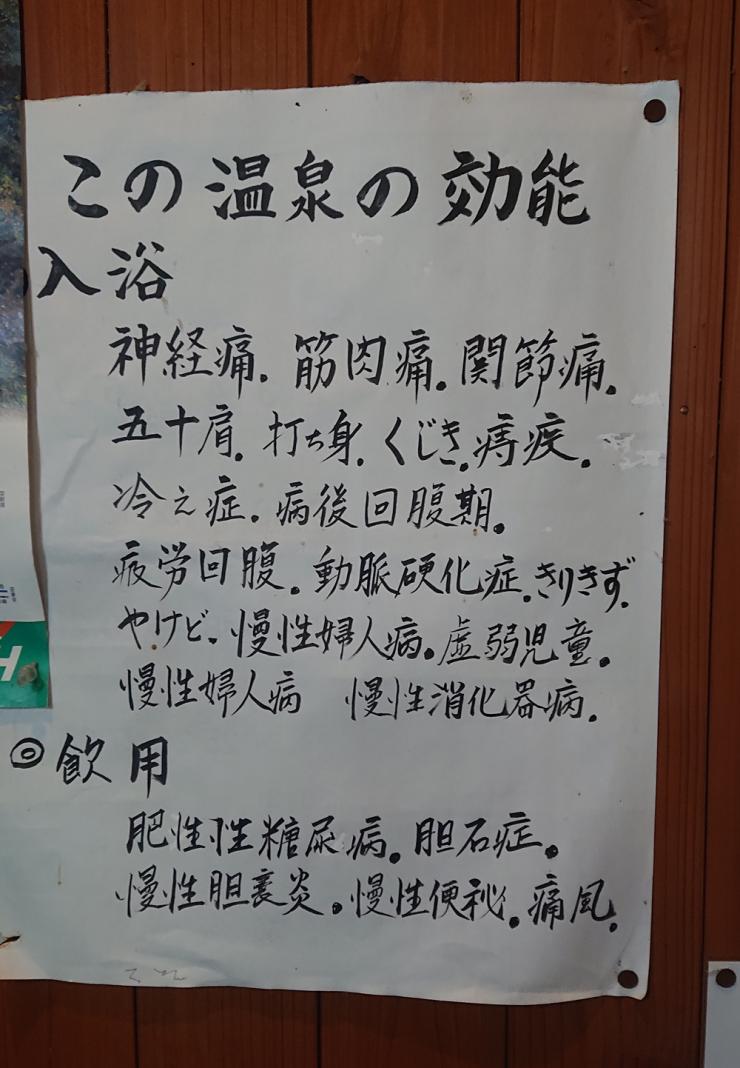 この温泉の効能
入浴
神経痛.筋肉痛.関節痛.
五十肩.打ち身.くじき.痔疾.
冷え症.病後回腹期.
疲労回腹.動脈硬化症.きりきず.
やけど.慢性婦人病.虚弱児童.
慢性婦人病 慢性消化器病.
◎飲用
肥性性糖尿病.胆石症.
慢性胆嚢炎.慢性便秘.痛風.